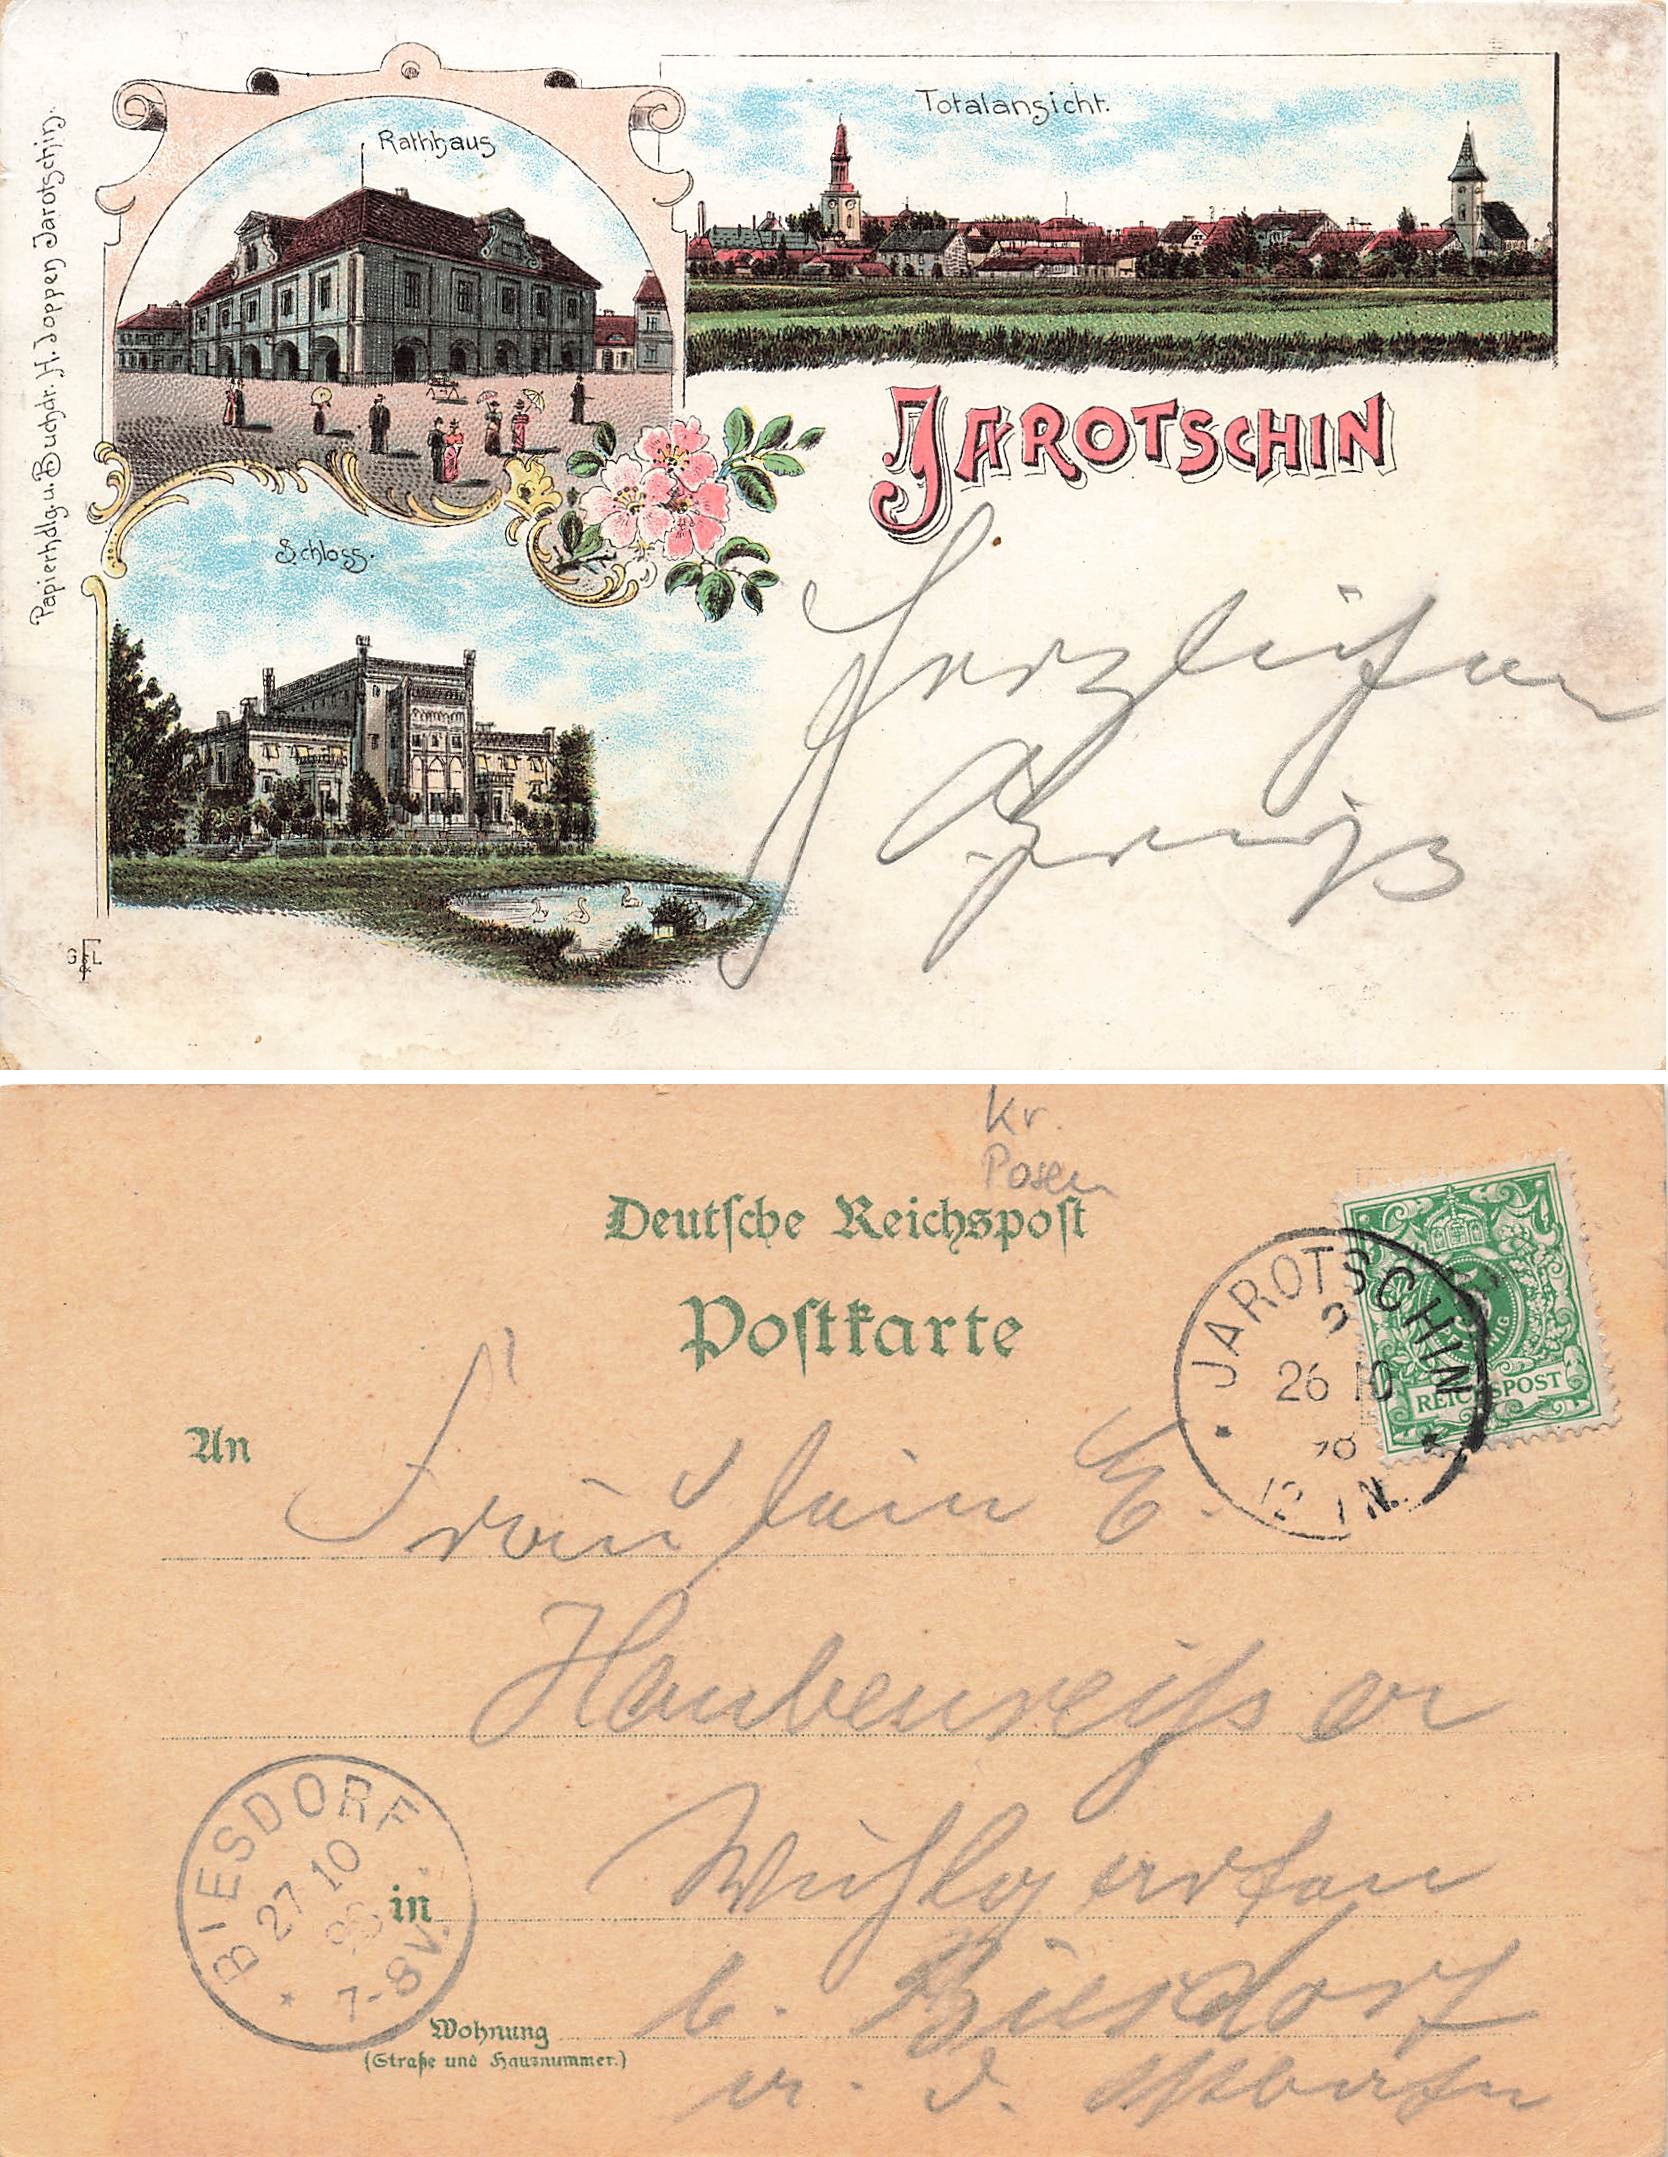 Papierhdlg u. Buchdr. H. Joppen Jarotschin.
Rathhaus
Totalansicht.
JAROTSCHIN
Schloss.
Herzlichen
Gruß
G F L
Kr.
Posen
Deutsche Reichspost
Postkarte
JAROTSCHIN
26 10
98
12 1 N.
REICHSPOST
An
Fräulein E.
Haubenreisser
Wuhlgarten
b. Biesdorf
a. d. Ostbahn
BIESDORF
27 10
98
7-8V.
in
Wohnung
(Straße und Hausnummer.)